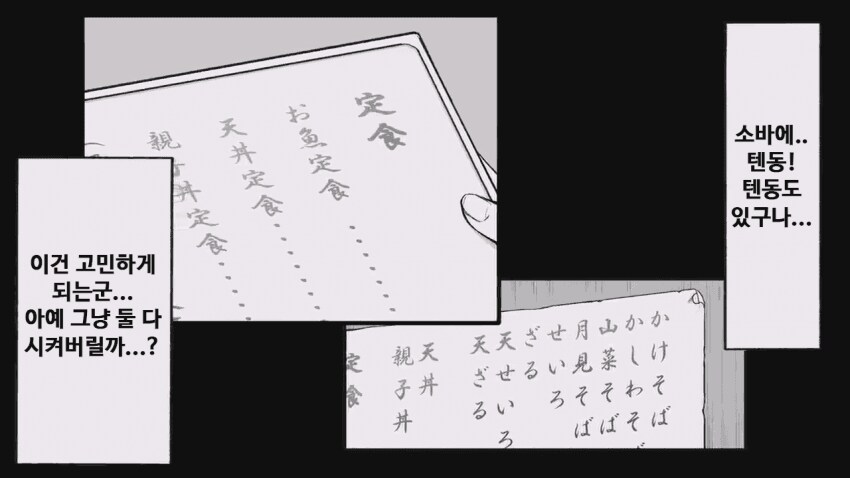 소바에..
텐동!
텐동도
있구나...
定食
お魚定食......
天丼定食......
親子丼定食......
이건 고민하게
되는군...
아예 그냥 둘 다
시켜버릴까...?
かけそば
かしわそば
山菜そば
月見そば
せいろ
ざる
天せいろ
天ざる
天丼
親子丼
定食